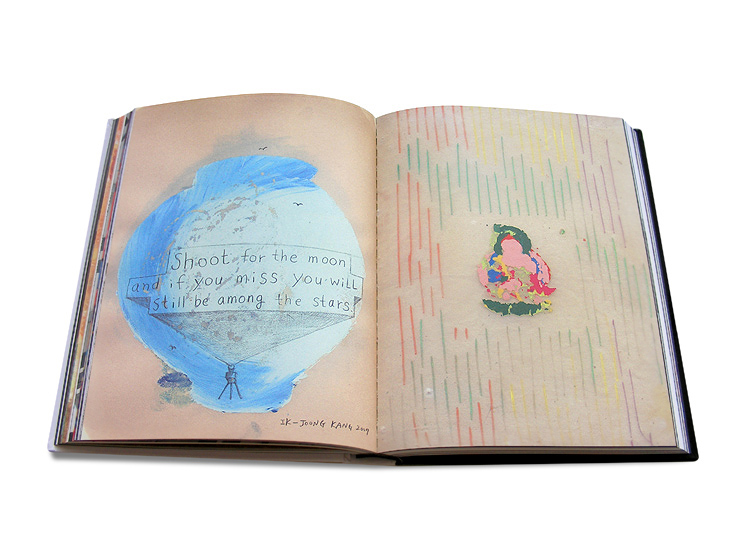 Shoot for the moon
and if you miss you will
still be among the stars
IK-JOONG KANG 2009